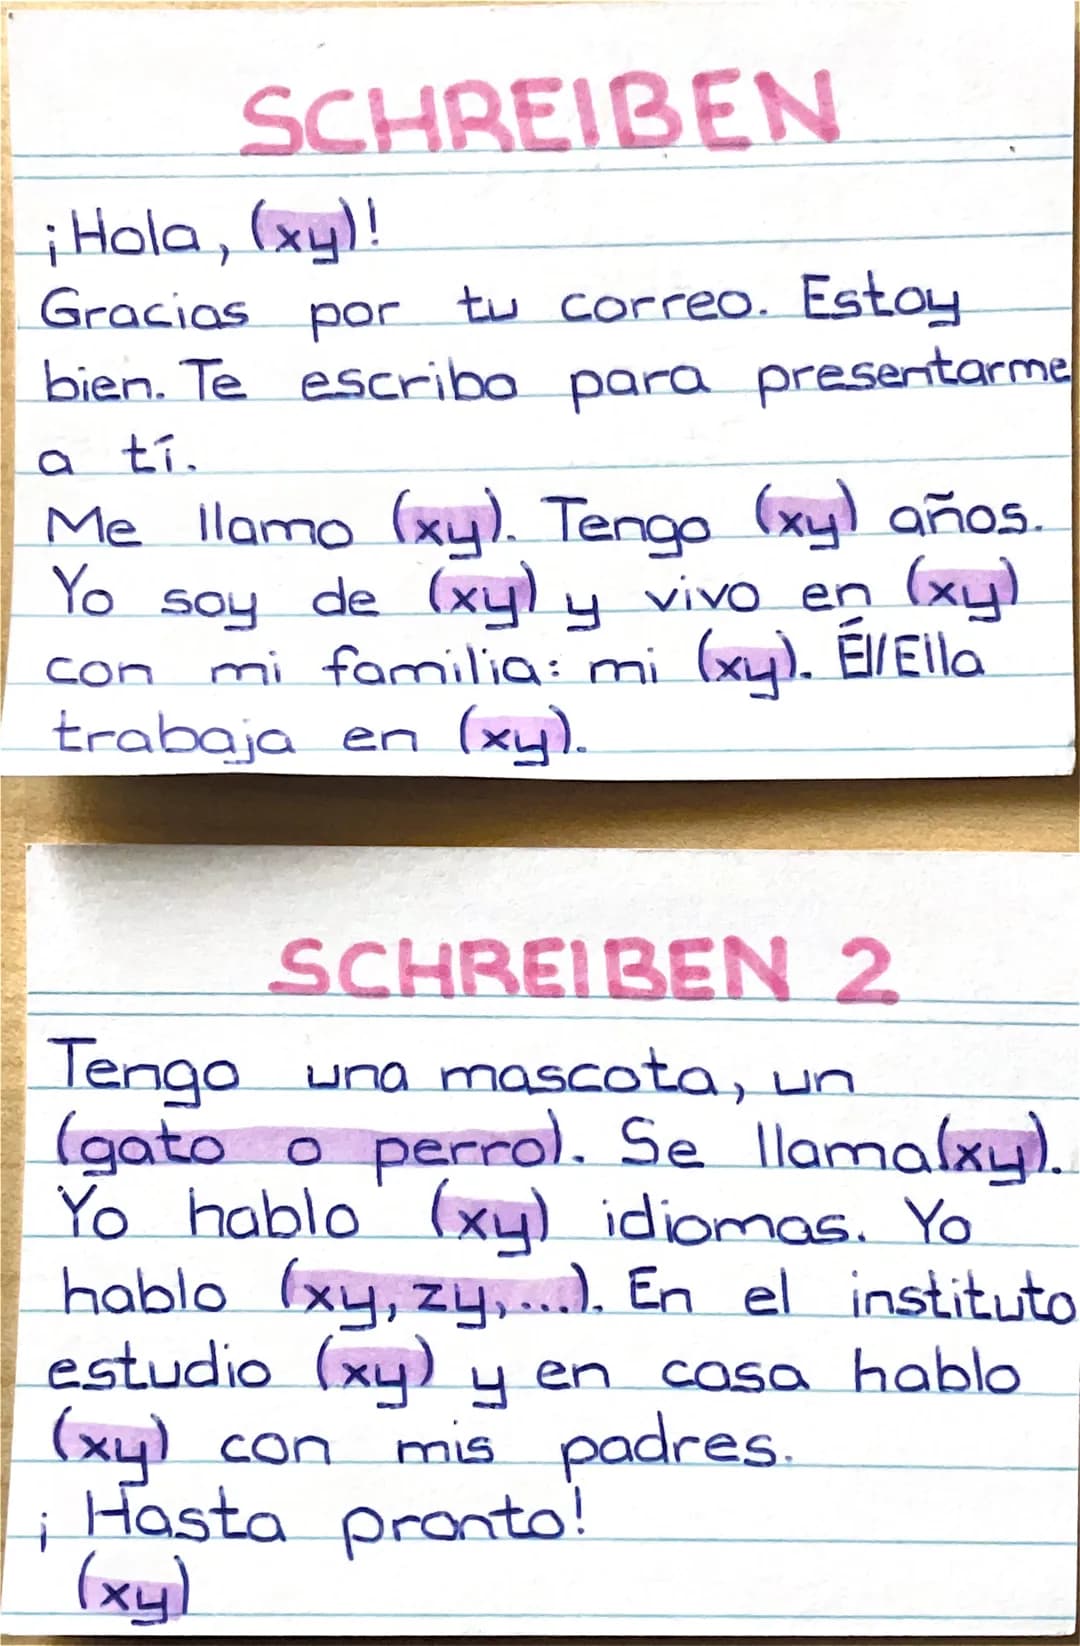 SCHREIBEN
¡Hola, (xy)!
Gracias por tu correo. Estoy
bien. Te escribo para presentarme
a tí.
Me llamo (xy). Tengo (xy) años.
Yo soy de (xy) y vivo en (xy)
con mi familia: mi (xy). Él/Ella
trabaja en (xy).
SCHREIBEN 2
Tengo una mascota, un
(gato o perro). Se llama (xy).
Yo hablo (xy) idiomas. Yo
hablo (xy, zy, ...). En el instituto
estudio (xy) y en casa hablo
(xy) con mis padres.
¡Hasta pronto!
(xy)